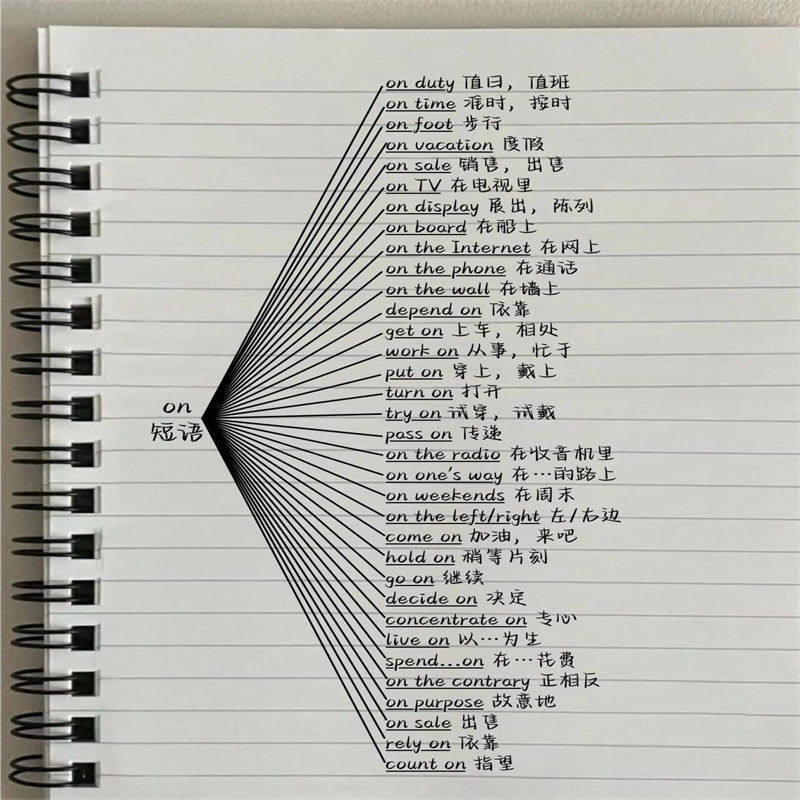 on
短语
on duty 值日，值班
on time 准时，按时
on foot 步行
on vacation 度假
on sale 销售，出售
on TV 在电视里
on display 展出，陈列
on board 在船上
on the Internet 在网上
on the phone 在通话
on the wall 在墙上
depend on 依靠
get on 上车，相处
work on 从事，忙于
put on 穿上，戴上
turn on 打开
try on 试穿，试戴
pass on 传递
on the radio 在收音机里
on one's way 在…的路上
on weekends 在周末
on the left/right 左/右边
come on 加油，来吧
hold on 稍等片刻
go on 继续
decide on 决定
concentrate on 专心
live on 以…为生
spend...on 在…花费
on the contrary 正相反
on purpose 故意地
on sale 出售
rely on 依靠
count on 指望